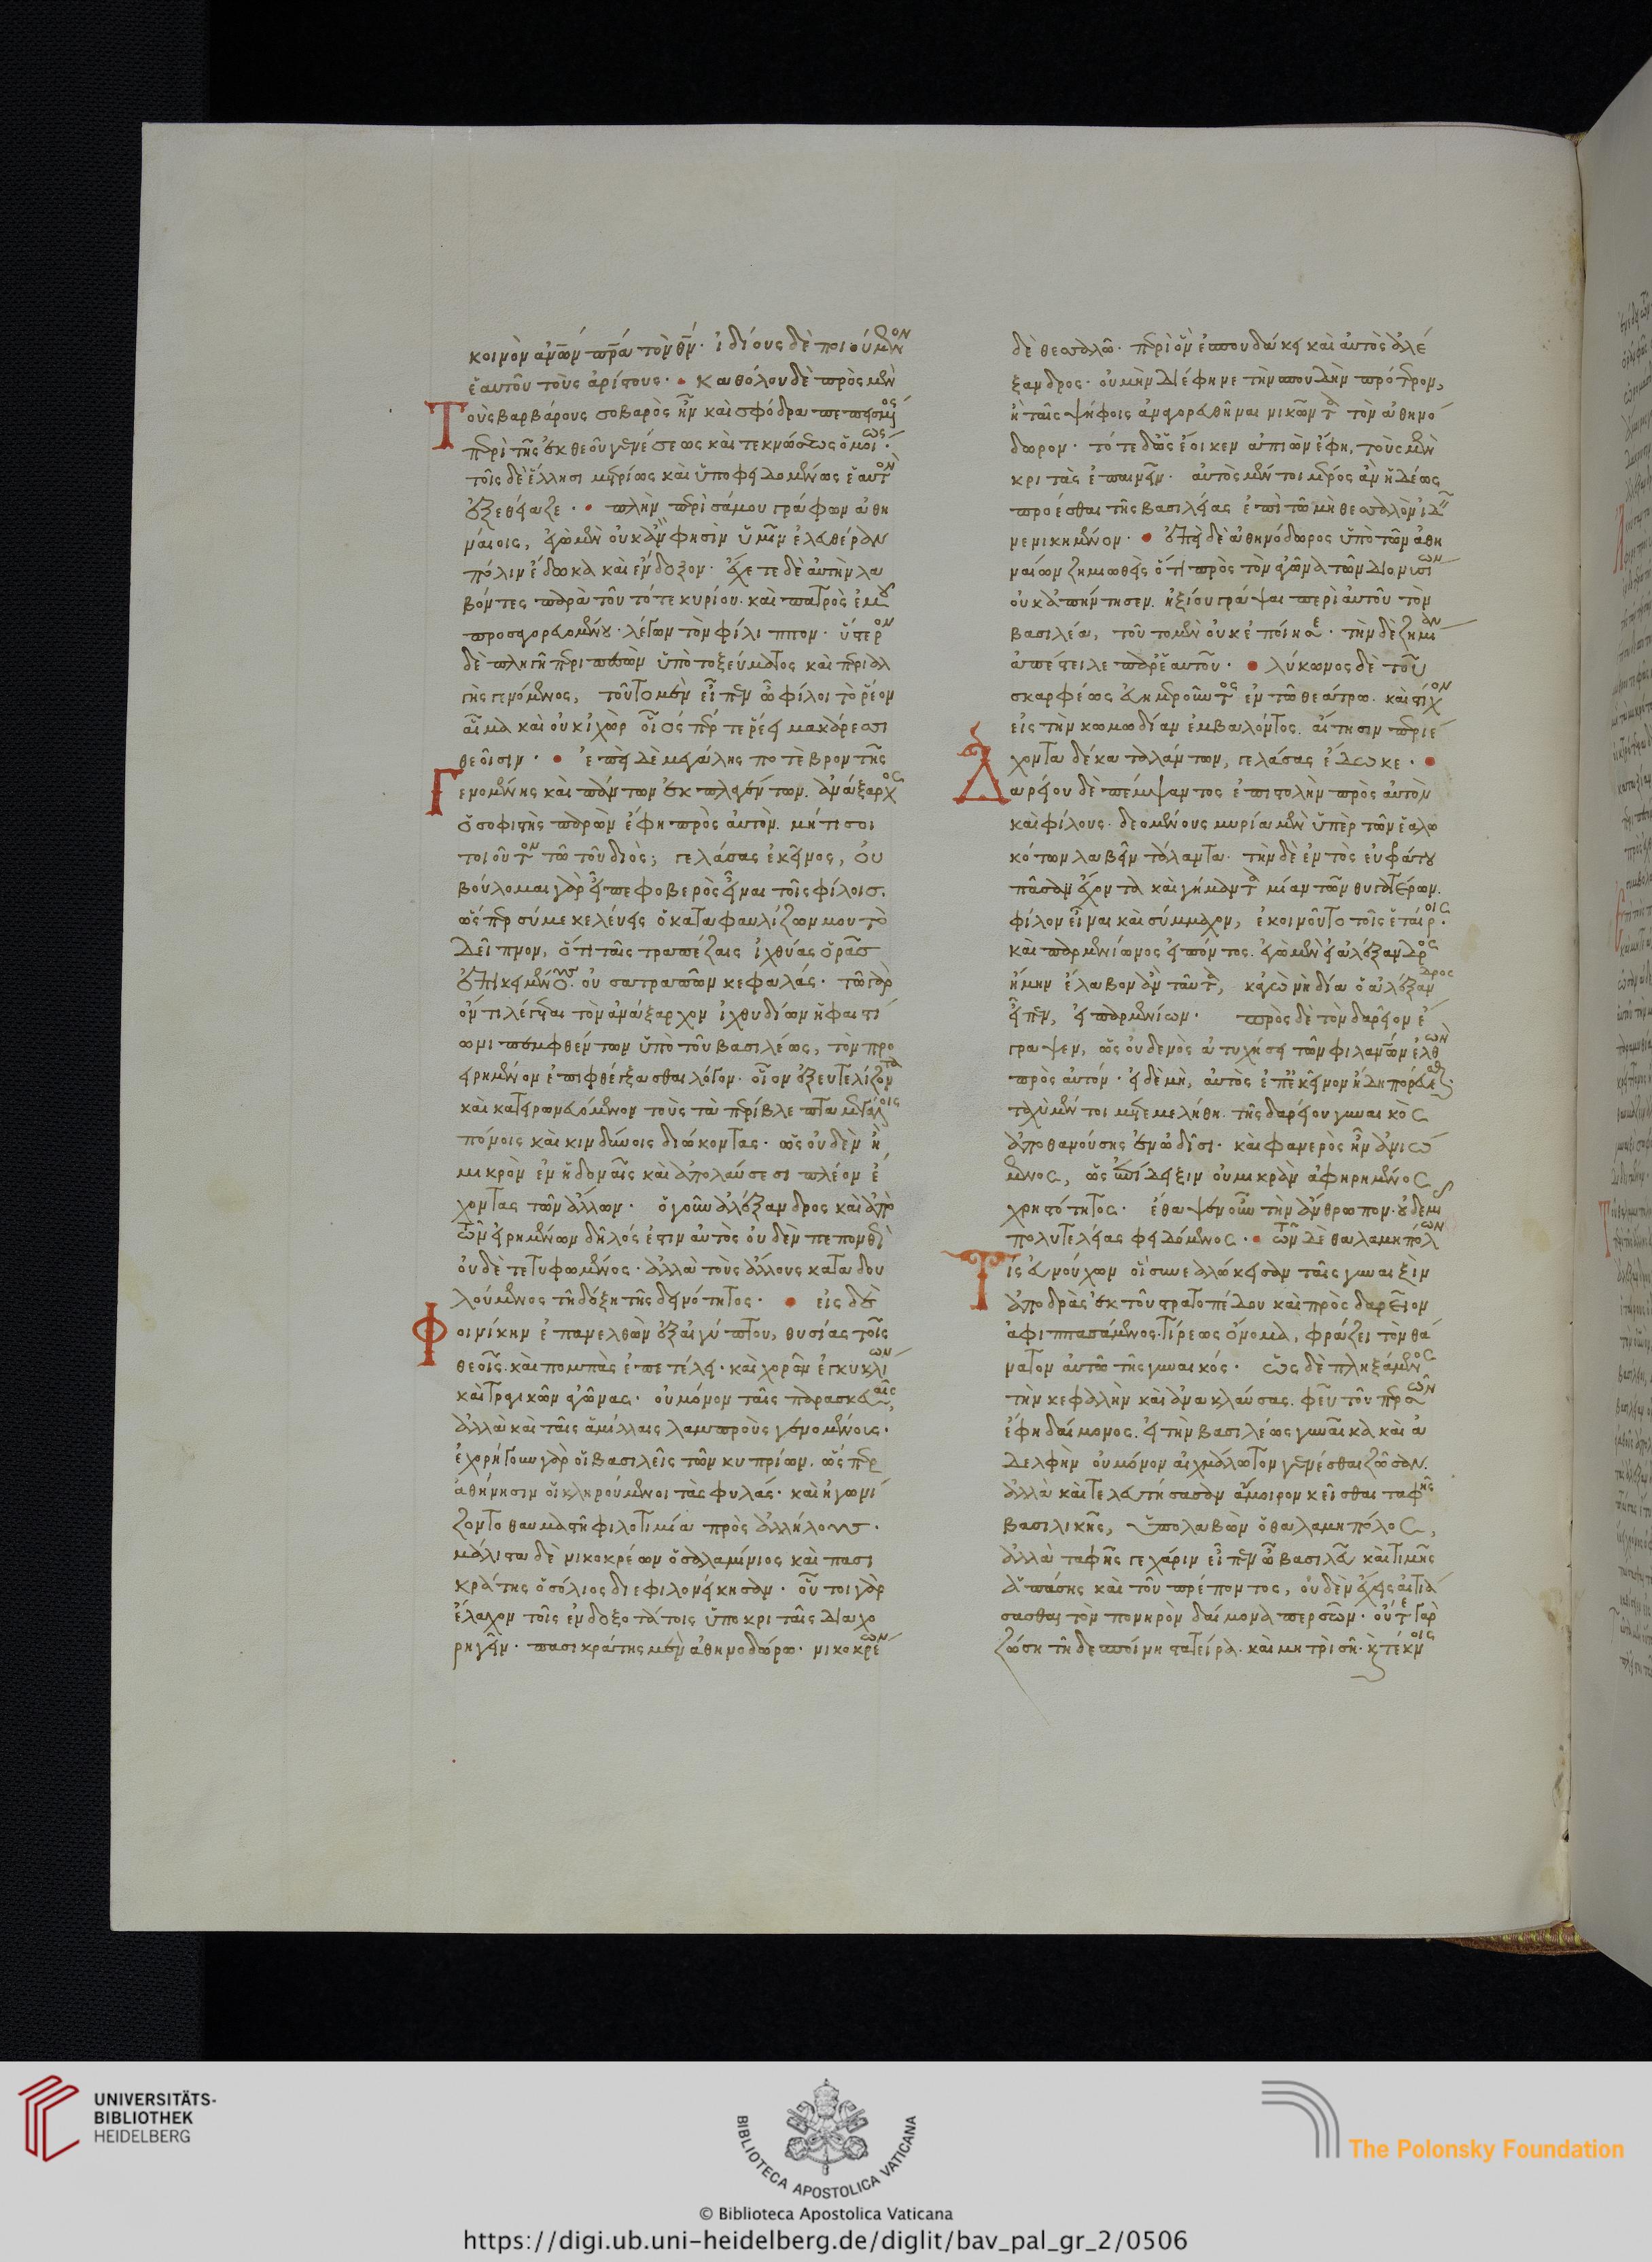 κοινὸν ἀνῶν πρα τὸν θν· ἰδίους δὲ ποιούμενον
ἑαυτοῦ τοὺς ἀρίστους· • καθόλου δὲ πρὸς μὲν
Τοὺς βαρβάρους σοβαρὸς ἦν καὶ σφόδρα πεπεισμένος
περὶ τῆς ἐκ θεοῦ γενέσεως καὶ τεκνώσεως ὅμοιως·
τοῖς δὲ ἕλλησι μετρίως καὶ ὑποφειδομένως ἑαυτὸν
ἐξεθείαζε· • πλὴν περὶ σάμου γράφων ἀθη
ναίοις, ἐγὼ μὲν οὐκ ἂν φησὶν ὑμῖν ἐλευθέραν
πόλιν ἔδωκα καὶ ἔνδοξον· ἔχετε δὲ αὐτὴν λα
βόντες παρὰ τοῦ τότε κυρίου· καὶ πατρὸς ἐμοῦ
προσαγορευομένου· λέγων τὸν φίλιππον· ὕστερον
δὲ πληγῇ περιπεσὼν ὑπὸ τοξεύματος καὶ περιαλ
γὴς γενόμενος, τοῦτο μὲν εἶπεν ὦ φίλοι τὸ ῥέον
αἷμα καὶ οὐκ ἰχὼρ οἷός πέρ τε ῥέει μακάρεσσι
θεοῖσιν· • ἐπεὶ δὲ μεγάλης ποτὲ βροντῆς
Γενομένης καὶ πάντων ἐκπλαγέντων. ἀνάξαρχος
ὁ σοφιστὴς παρὼν ἔφη πρὸς αὐτὸν. μήτι σοι
τοιοῦτον τῶ τοῦ διὸς; γελάσας ἐκεῖνος, οὐ
βούλομαι γὰρ εἶπε φοβερὸς εἶναι τοῖς φίλοισ.
ὥσπερ σύ με κελεύεις ὁ καταφαυλίζων μου τὸ
Δεῖπνον, ὅτι ταῖς τραπέζαις ἰχθύας ὁρᾶσ
ἐπικειμένους. οὐ σατραπῶν κεφαλάς· τῶ γὰρ
ὄντι λέγεται τὸν ἀνάξαρχον ἰχθυδίων ἡφαιστί
ωνι πεμφθέντων ὑπὸ τοῦ βασιλέως, τὸν προ
ειρημένον ἐπιφθέγξασθαι λόγον. οἷον ἐξευτελίζοντα
καὶ κατειρωνευόμενον τοὺς τὰ περίβλεπτα μεγάλοις
πόνοις καὶ κινδύνοις διώκοντας· ὡς οὐδὲν ἢ
μικρὸν ἐν ἡδοναῖς καὶ ἀπολαύσεσι πλέον ἔ
χοντας τῶν ἄλλων· ὁ γοῦν ἀλέξανδρος καὶ ἀπὸ
τῶν εἰρημένων δῆλός ἐστιν αὐτὸς οὐδὲν πεπονθὼς
οὐδὲ τετυφωμένος· ἀλλὰ τοὺς ἄλλους καταδου
λούμενος τῆ δόξη τῆς θειότητος· • εἰς δὲ
Φοινίκην ἐπανελθὼν ἐξ αἰγύπτου, θυσίας τοῖς
θεοῖς. καὶ πομπὰς ἐπετέλει· καὶ χορῶν ἐγκυκλίων
καὶ τραγικῶν ἀγῶνας· οὐ μόνον ταῖς παρασκευαῖς,
ἀλλὰ καὶ ταῖς ἁμίλλαις λαμπροὺς γενομένους·
ἐχορήγουν γὰρ οἱ βασιλεῖς τῶν κυπρίων. ὥσπερ
ἀθήνησιν οἱ κληρούμενοι τὰς φυλάς· καὶ ἠγωνί
ζοντο θαυμαστῆ φιλοτιμία πρὸς ἀλλήλους·
μάλιστα δὲ νικοκρέων ὁ σαλαμίνιος καὶ πασι
κράτης ὁ σόλιος διεφιλονείκησαν· οὗτοι γὰρ
ἔλαχον τοῖς ἐνδοξοτάτοις ὑποκριταῖς Διαχο
ρηγεῖν· πασικράτης μὲν ἀθηνοδώρω· νικοκρέων
δὲ θεσσαλῶ· περὶ ὃν ἐσπουδάκει καὶ αὐτὸς ἀλέ
ξανδρος· οὐ μὴν Διέφηνε τὴν σπουδὴν πρότερον,
ἢ ταῖς ψήφοις ἀναγορευθῆναι νικῶντα τὸν ἀθηνό
δωρον· τότε δὲ ὡς ἔοικεν ἀπιὼν ἔφη, τοὺς μὲν
κριτὰς ἐπαινεῖν· αὐτὸς μέντοι μέρος ἂν ἡδέως
προέσθαι τῆς βασιλείας ἐπὶ τῶ μὴ θεσσαλὸν ἰδεῖν
νενικημένον· • ἐπεὶ δὲ ἀθηνόδωρος ὑπὸ τῶν ἀθη
ναίων ζημιωθεὶς ὅτι πρὸς τὸν ἀγῶνα τῶν Διονυσίων
οὐκ ἀπήντησεν. ἠξίου γράψαι περὶ αὐτοῦ τὸν
βασιλέα, τοῦτο μὲν οὐκ ἐποίησε· τὴν δὲ ζημίαν
ἀπέστειλε παρ ἑαυτοῦ· • λύκωνος δὲ τοῦ
σκαρφέως εὐημεροῦντος ἐν τῶ θεάτρω. καὶ στίχον
εἰς τὴν κωμωδίαν ἐμβαλόντος. αἴτησιν περιέ
χοντα δέκα ταλάντων, γελάσας ἔδωκε· •
Δαρείου δὲ πέμψαντος ἐπιστολὴν πρὸς αὐτὸν
καὶ φίλους· δεομένους μυρία μὲν ὑπὲρ τῶν ἑαλω
κότων λαβεῖν τάλαντα· τὴν δὲ ἐντὸς εὐφράτου
πᾶσαν ἔχοντα καὶ γήμαντα μίαν τῶν θυγατέρων.
φίλον εἶναι καὶ σύμμαχον, ἐκοινοῦτο τοῖς ἑταίροις.
καὶ παρμενίωνος εἰπόντος. ἐγὼ μὲν εἰ ἀλέξανδρος
ἤμην ἔλαβον ἂν ταῦτα, κἀγὼ νὴ δία ὁ ἀλέξανδρος
εἶπεν, εἰ παρμενίων· πρὸς δὲ τὸν δαρεῖον ἔ
γραψεν, ὡς οὐδενὸς ἀτυχήσει τῶν φιλανθρώπων ἐλθὼν
πρὸς αὐτόν· εἰ δὲ μὴ, αὐτὸς ἐπ ἐκεῖνον ἤδη πορεύεσθαι.
ταχὺ μέντοι μετεμελήθη. τῆς δαρείου γυναικὸς
ἀποθανούσης ἐν ὠδῖσι· καὶ φανερὸς ἦν ἀνιώ
μενος, ὡς ἐπίδειξιν οὐ μικρὰν ἀφηρημένος
χρηστότητος· ἔθαψεν οὖν τὴν ἄνθρωπον· οὐδεμι
πολυτελείας φειδόμενος· • τῶν δὲ θαλαμηπόλων
Τίς εὐνούχων οἳ συνεαλώκεσαν ταῖς γυναιξὶν
ἀποδρὰς ἐκ τοῦ στρατοπέδου καὶ πρὸς δαρεῖον
ἀφιππασάμενος· τίρεως ὄνομα, φράζει τὸν θά
νατον αὐτῶ τῆς γυναικός· ὡς δὲ πληξάμενος
τὴν κεφαλὴν καὶ ἀνακλαύσας. φεῦ τοῦ περσῶν
ἔφη δαίμονος. εἰ τὴν βασιλέως γυναῖκα καὶ ἀ
Δελφὴν οὐ μόνον αἰχμάλωτον γενέσθαι ζῶσαν.
ἀλλὰ καὶ τελευτήσασαν ἄμοιρον κεῖσθαι ταφῆς
βασιλικῆς, ὑπολαβὼν ὁ θαλαμηπόλος,
ἀλλὰ ταφῆς γε χάριν εἶπεν ὦ βασιλεῦ καὶ τιμῆς
ἁπάσης καὶ τοῦ πρέποντος, οὐδὲν ἔχεις αἰτιά
σασθαι τὸν πονηρὸν δαίμονα περσῶν· οὔτε γὰρ
ζώση τῆ δεσποίνη στατείρα· καὶ μητρὶ σῆ· κ τέκνοις
UNIVERSITÄTS-
BIBLIOTHEK
HEIDELBERG
BIBLIOTECA APOSTOLICA VATICANA
The Polonsky Foundation
© Biblioteca Apostolica Vaticana
https://digi.ub.uni-heidelberg.de/diglit/bav_pal_gr_2/0506